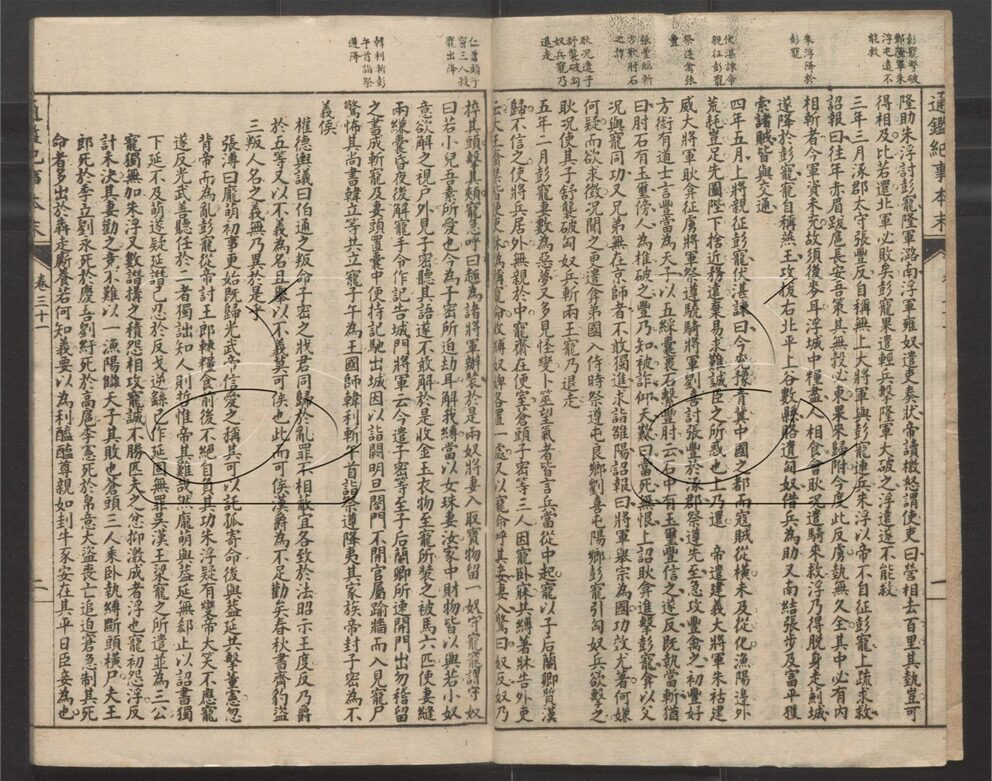 彭寵擊破
鄧隆軍朱
浮屯遠不
能救
朱浮降於
彭寵
伏湛諫帝
親征彭寵
祭遵禽張
豐
張豐臨斬
方知肘石
之詐
耿況遣子
舒襲破匈
奴兵寵乃
退走
通鑑紀事本末
隆助朱浮討彭寵隆軍潞南浮軍雍奴遣吏奏狀帝讀檄怒謂使吏曰營相去百里其埶豈可
得相及比若還北軍必敗矣彭寵果遣輕兵擊隆軍大破之浮遠遂不能救
三年三月涿郡太守張豐反自稱無上大將軍與彭寵連兵朱浮以帝不自征彭寵上疏求救
詔報曰往年赤眉跋扈長安吾策其無穀必東果來歸附今度此反虜執無久全其中必有內
相斬者今軍資未充故須後麥耳浮城中糧盡人相食會耿況遣騎來救浮乃得脫身走薊城
遂降於彭寵寵自稱燕王攻拔右北平上谷數縣賂遺匈奴借兵為助又南結張步及富平獲
索諸賊皆與交通
四年五月上將親征彭寵伏湛諫曰今兗豫青冀中國之都而寇賊從橫未及從化漁陽邊外
荒耗豈足先圖陛下捨近務遠棄易求難誠臣之所惑也上乃還　帝遣建義大將軍朱祐建
威大將軍耿弇征虜將軍祭遵驍騎將軍劉喜討張豐於涿郡祭遵先至急攻豐禽之初豐好
方術有道士言豐當為天子以五綵囊裹石繫豐肘云石中有玉璽豐信之遂反既執當斬猶
曰肘石有玉璽傍人為椎破之豐乃知被詐仰天歎曰當死無恨上詔耿弇進擊彭寵弇以父
況與寵同功又兄弟無在京師者不敢獨進求詣雒陽詔報曰將軍舉宗為國功效尤著何嫌
何疑而欲求徵況聞之更遣弇弟國入侍時祭遵屯良鄉劉喜屯陽鄉彭寵引匈奴兵欲擊之
耿況使其子舒襲破匈奴兵斬兩王寵乃退走
五年二月彭寵妻數為惡夢又多見怪變卜筮望氣者皆言兵當從中起寵以子后蘭卿質漢
歸不信之使將兵居外無親於中寵齋在便室蒼頭子密等三人因寵臥寐共縛著牀告外吏
云大王齋禁皆使吏休偽稱寵命收縛奴婢各置一處又以寵命呼其妻妻入驚曰奴反奴乃
仁蒼頭子
密三人殺
寵出降
韓利斬彭
午首詣祭
遵降
捽其頭擊其頰寵急呼曰趣為諸將軍辦裝於是兩奴將妻入取寶物留一奴守寵寵謂守奴
曰若小兒吾素所愛也今為子密所迫劫耳解我縛當以女珠妻汝家中財物皆以與若小奴
意欲解之視戶外見子密聽其語遂不敢解於是收金玉衣物至寵所裝之被馬六匹使妻縫
兩縑囊昏夜後解寵手令作記告城門將軍云今遣子密等至子后蘭卿所速開門出勿稽留
之書成斬寵及妻頭置囊中便持記馳出城因以詣闕明旦閤門不開官屬踰牆而入見寵尸
驚怖其尚書韓立等共立寵子午為王國師韓利斬午首詣祭遵降夷其家族帝封子密為不
義侯
權德輿議曰伯通之叛命子密之戕君同歸於亂罪不相蔽宜各致於法昭示王度反乃爵
於五等又以不義為名且舉以不義莫可侯也此而可侯漢爵為不足勸矣春秋書齊豹盜
三叛人名之義無乃異於是乎
張溥曰龐萌初事更始既歸光武帝信愛之稱其可以託孤寄命後與蓋延共擊董憲忽
背帝而為亂彭寵從帝討王郎轉糧食前後不絕自負其功朱浮疑有變帝大笑不應寵
遂反光武善聽任於二者獨詘知人則哲惟帝其難哉然龐萌與蓋延無郄止以詔書獨
下延不及萌遂疑延譖己忍於反戈逆繇己作延固無罪吳漢王梁寵之所遣並為三公
寵獨無加朱浮又數譖構之積怨相攻寵誠不勝匹夫之忿抑激成者浮也寵初怨浮反
計未決其妻勸之妻亦不難以一漁陽讎天子其敗也蒼頭三人乘臥執縛斷頭橫尸夫王
郎死於李立劉永死於慶吾劉紆死於高扈李憲死於帛意大盜喪亡追迫窘急制其死
命者多出於犇走廝養若何知義要以為利醢醢尊親如封牛豕安在其平日臣妾為也
卷三十一